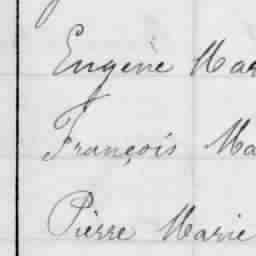 Eugène Mar
François Ma
Pierre Marie